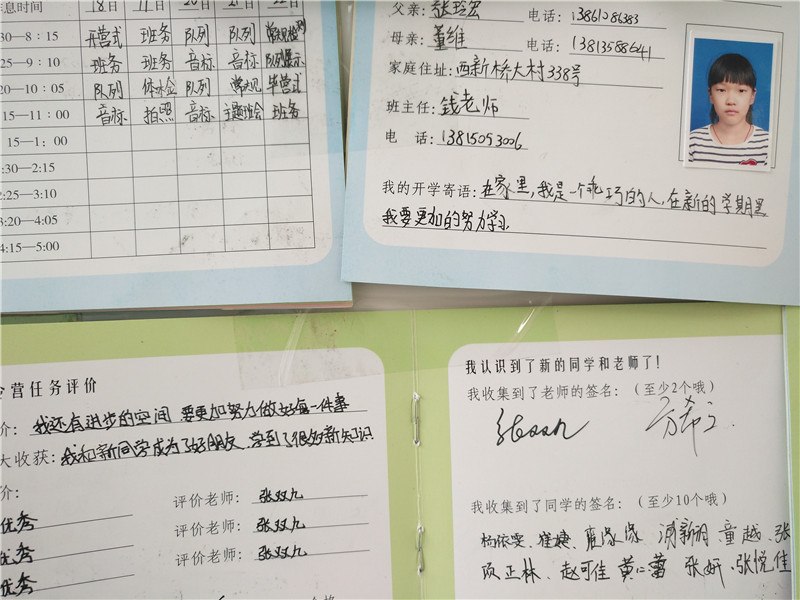 息时间 18日 19日 20日 21日 22日
30—8：15 开营式 班务 队列 队列
25—9：10 班务 队列 音标 音标 队列展示
20—10：05 队列 体味会 队列 常规 毕营式
15—11：00 音标 拍照 音标 主题班会 班务
15—1；00
:30—2:15
2:25—3:10
3:20—4:05
4:15—5:00
父亲： 电话：13861086383
母亲：董维 电话：13813588641
家庭住址：西新桥大村338号
班主任：钱老师
电 话：13815053006
我的开学寄语：在家里，我是一个乖巧的人，在新的学期里
我要更加的努力学习
令营任务评价
价：我还有进步的空间 要更加努力做好每一件事
大收获：我和新同学成为了好朋友，学到了很多新知识
价：
优秀 评价老师：张双九
优秀 评价老师：张双九
优秀 评价老师：张双九
我认识到了新的同学和老师了！
我收集到了老师的签名：（至少2个哦）
我收集到了同学的签名：（至少10个哦）
杨依雯、崔婕、童越、张
项正林、赵可佳 黄心蕾 张妍、张悦佳